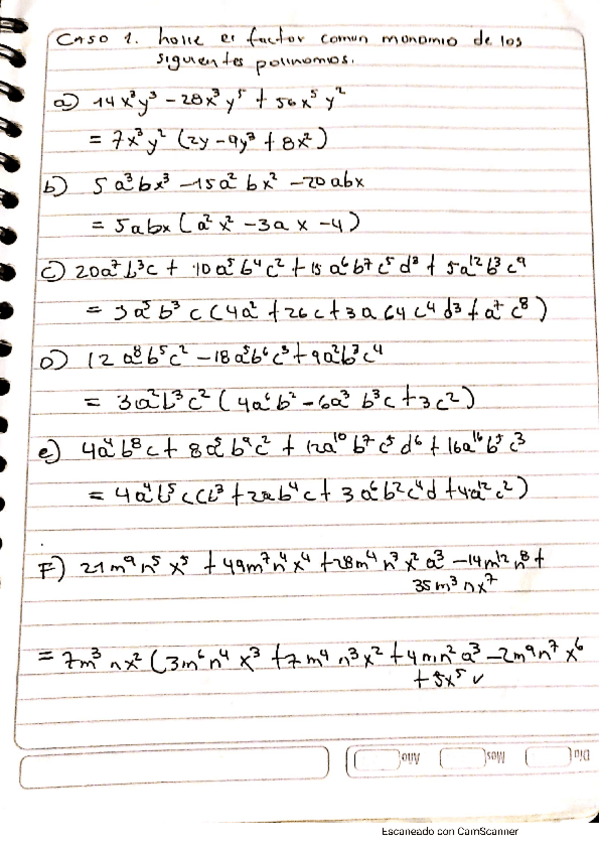 CASO 1. halle el factor comun monomio de los
siguientes polinomios.
a) 14x³y³ - 28x³y⁵ + 56x⁵y²
= 7x³y² (2y - 9y³ + 8x²)
b) 5a³bx³ - 15a²bx² - 20abx
= 5abx (a²x² - 3ax - 4)
c) 20a⁷b³c + 10a⁵b⁴c² + 15a⁶b⁷c⁵d³ + 5a¹²b³c⁹
= 5a⁵b³c (4a² + 2bc + 3ab4c⁴d³ + a⁷c⁸)
D) 12a⁸b⁵c² - 18a⁵b⁶c³ + 9a²b³c⁴
= 3a²b³c² (4a⁶b² - 6a³b³c + 3c²)
e) 4a⁴b⁸c + 8a⁵b⁹c² + 12a¹⁰b⁷c⁵d⁶ + 16a¹⁶b⁵c³
= 4a⁴b⁵c(b³ + 2ab⁴c + 3a⁶b²c⁴d + 4a¹²c²)
F) 21m⁹n⁵x⁵ + 49m⁷n⁴x⁴ + 28m⁴n³x²a³ - 14m¹²n⁸ +
35m³nx⁷
= 7m³nx² (3m⁶n⁴x³ + 7m⁴n³x² + 4mn²a³ - 2m⁹n⁷x⁶
+ 5x⁵
Día Mes Año
Escaneado con CamScanner